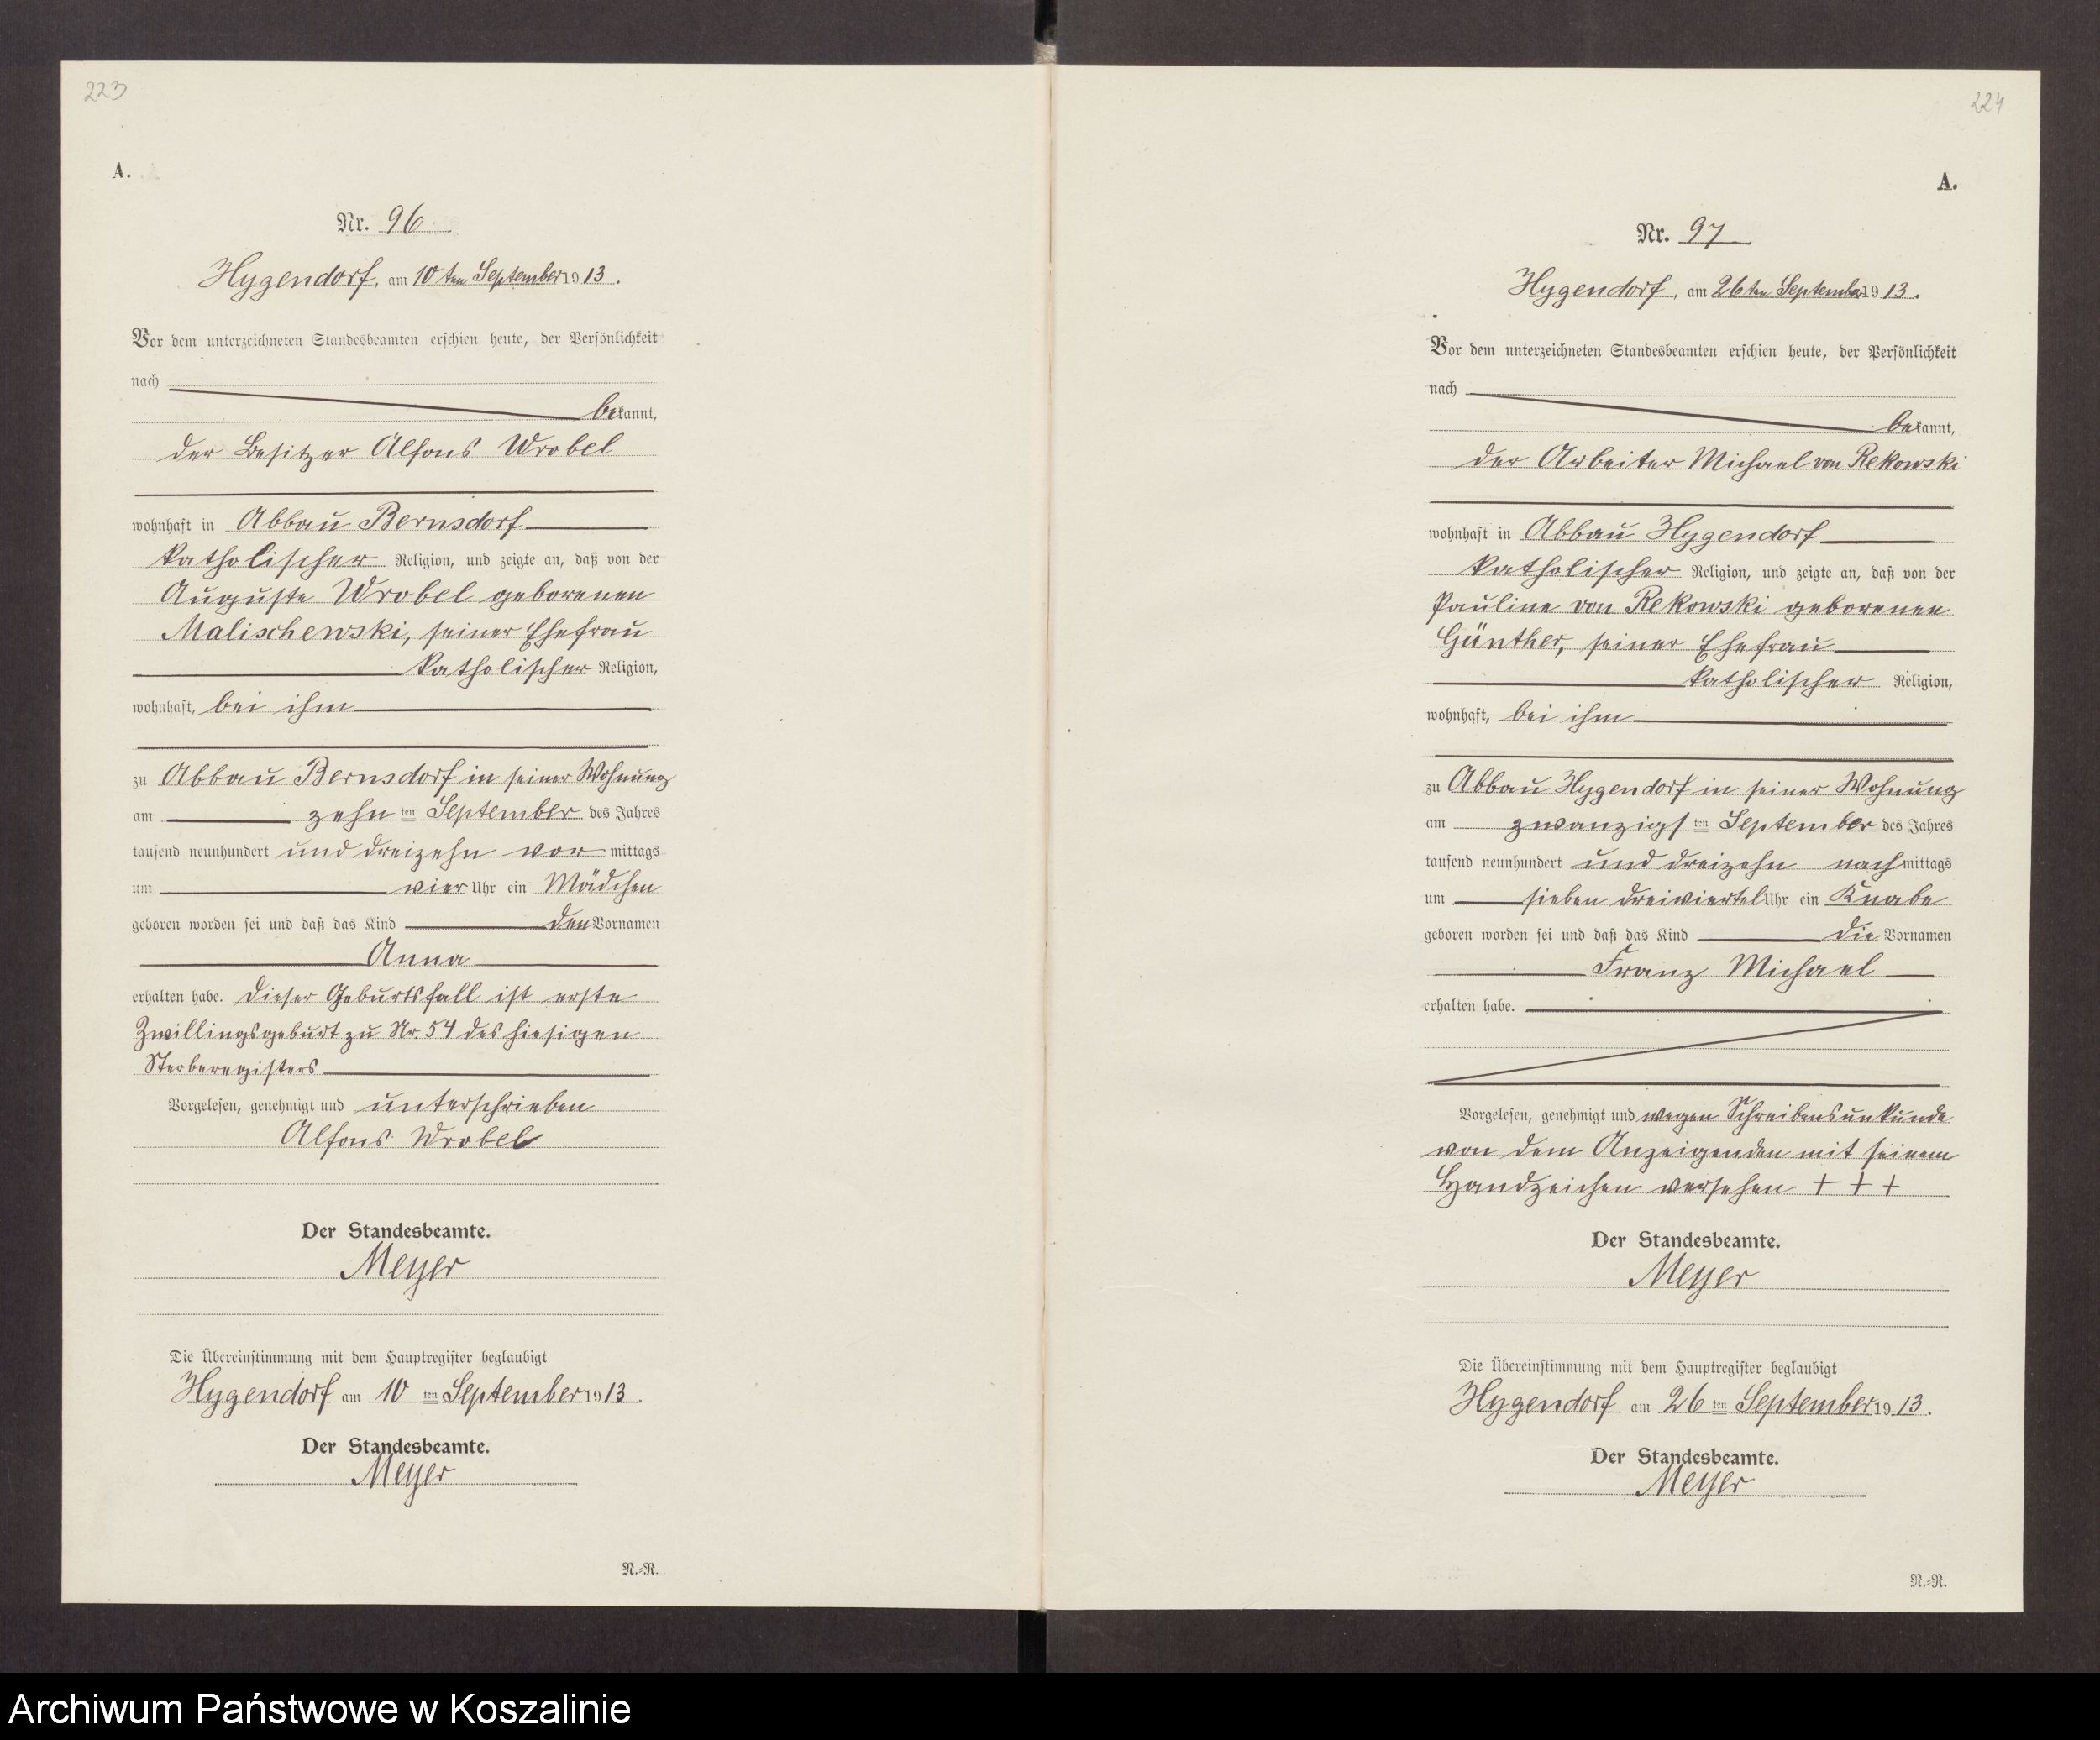 223
A.
Nr. 96
Hygendorf, am 10ten September 1913.
Vor dem unterzeichneten Standesbeamten erschien heute, der Persönlichkeit
nach
bekannt,
der Besitzer Alfons Wrobel
wohnhaft in Abbau Bernsdorf
katholischer Religion, und zeigte an, daß von der
Auguste Wrobel geborenen
Malischewski, seiner Ehefrau
katholischer Religion,
wohnhaft, bei ihm
zu Abbau Bernsdorf in seiner Wohnung
am zehn ten September des Jahres
tausend neunhundert und dreizehn vor mittags
um vier Uhr ein Mädchen
geboren worden sei und daß das Kind den Vornamen
Anna
erhalten habe. Dieser Geburtsfall ist erste
Zwillingsgeburt zu Nr. 54 des hiesigen
Sterberegisters
Vorgelesen, genehmigt und unterschrieben
Alfons Wrobel
Der Standesbeamte.
Meyer
Die Übereinstimmung mit dem Hauptregister beglaubigt
Hygendorf am 10 ten September 1913.
Der Standesbeamte.
Meyer
N.-R.
224
A.
Nr. 97
Hygendorf, am 26ten September 1913.
Vor dem unterzeichneten Standesbeamten erschien heute, der Persönlichkeit
nach
bekannt,
der Arbeiter Michael von Rekowski
wohnhaft in Abbau Hygendorf
katholischer Religion, und zeigte an, daß von der
Pauline von Rekowski geborenen
Günther, seiner Ehefrau
katholischer Religion,
wohnhaft, bei ihm
zu Abbau Hygendorf in seiner Wohnung
am zwanzigsten September des Jahres
tausend neunhundert und dreizehn nach mittags
um sieben dreiviertel Uhr ein Knabe
geboren worden sei und daß das Kind die Vornamen
Franz Michael
erhalten habe.
Vorgelesen, genehmigt und wegen Schreibensunkunde
von dem Anzeigenden mit seinem
Handzeichen versehen + + +
Der Standesbeamte.
Meyer
Die Übereinstimmung mit dem Hauptregister beglaubigt
Hygendorf am 26 ten September 1913.
Der Standesbeamte.
Meyer
N.-R.
Archiwum Państwowe w Koszalinie